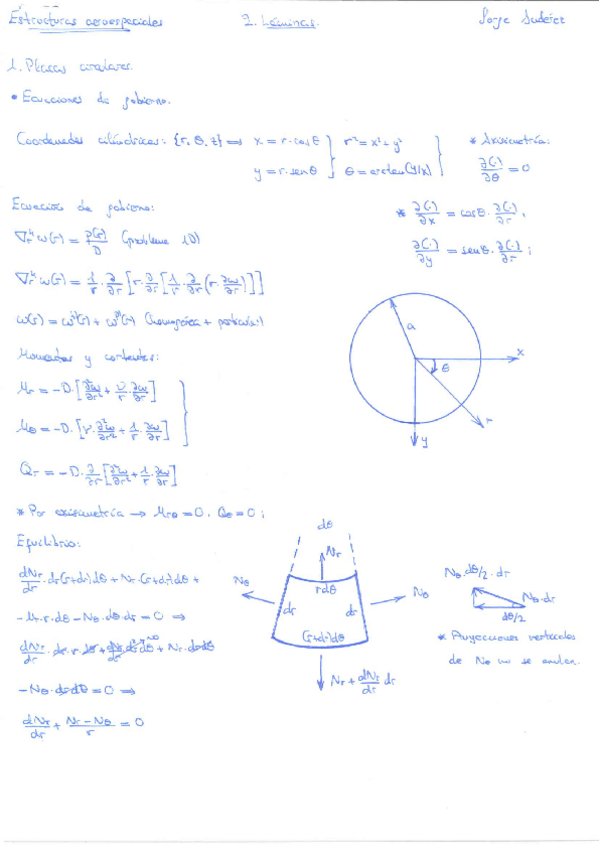 Estructuras aeroespaciales
2. Láminas.
Jorge
1. Placas circulares.
• Ecuaciones de gobierno.
Coordenadas cilíndricas: {r, θ, z} ⟹ x = r·cosθ
y = r·senθ
r² = x² + y²
θ = arctan(y/x)
* Axisimetría:
∂(·)/∂θ = 0
Ecuación de gobierno:
* ∂(·)/∂x = cosθ·∂(·)/∂r ;
∂(·)/∂y = senθ·∂(·)/∂r ;
∇r⁴ω(r) = p(r)/D (problema 1D)
∇r⁴ω(r) = 1/r·∂/∂r[r·∂/∂r[1/r·∂/∂r(r·∂ω/∂r)]]
ω(r) = ωʰ(r) + ωᵖ(r) (homogénea + particular)
a
x
θ
r
y
Momentos y cortantes:
Mr = -D·[∂²ω/∂r² + ν/r·∂ω/∂r]
Mθ = -D·[ν·∂²ω/∂r² + 1/r·∂ω/∂r]
Qr = -D·∂/∂r[∂²ω/∂r² + 1/r·∂ω/∂r]
* Por axisimetría → Mrθ = 0, Qθ = 0 ;
Equilibrio:
dNr/dr·dr(r+dr)dθ + Nr·(r+dr)dθ +
-Nr·r·dθ - Nθ·dθ·dr = 0 ⟹
dNr/dr·dr·r·dθ + dNr/dr·dr²dθ + Nr·drdθ
-Nθ·drdθ = 0 ⟹
dNr/dr + Nr - Nθ/r = 0
dθ
Nr
rdθ
Nθ
dr
dr
Nθ
(r+dr)dθ
Nr + dNr/dr dr
Nθ·dθ/2·dr
Nθ·dr
dθ/2
* Proyecciones verticales
de Nθ no se anulan.